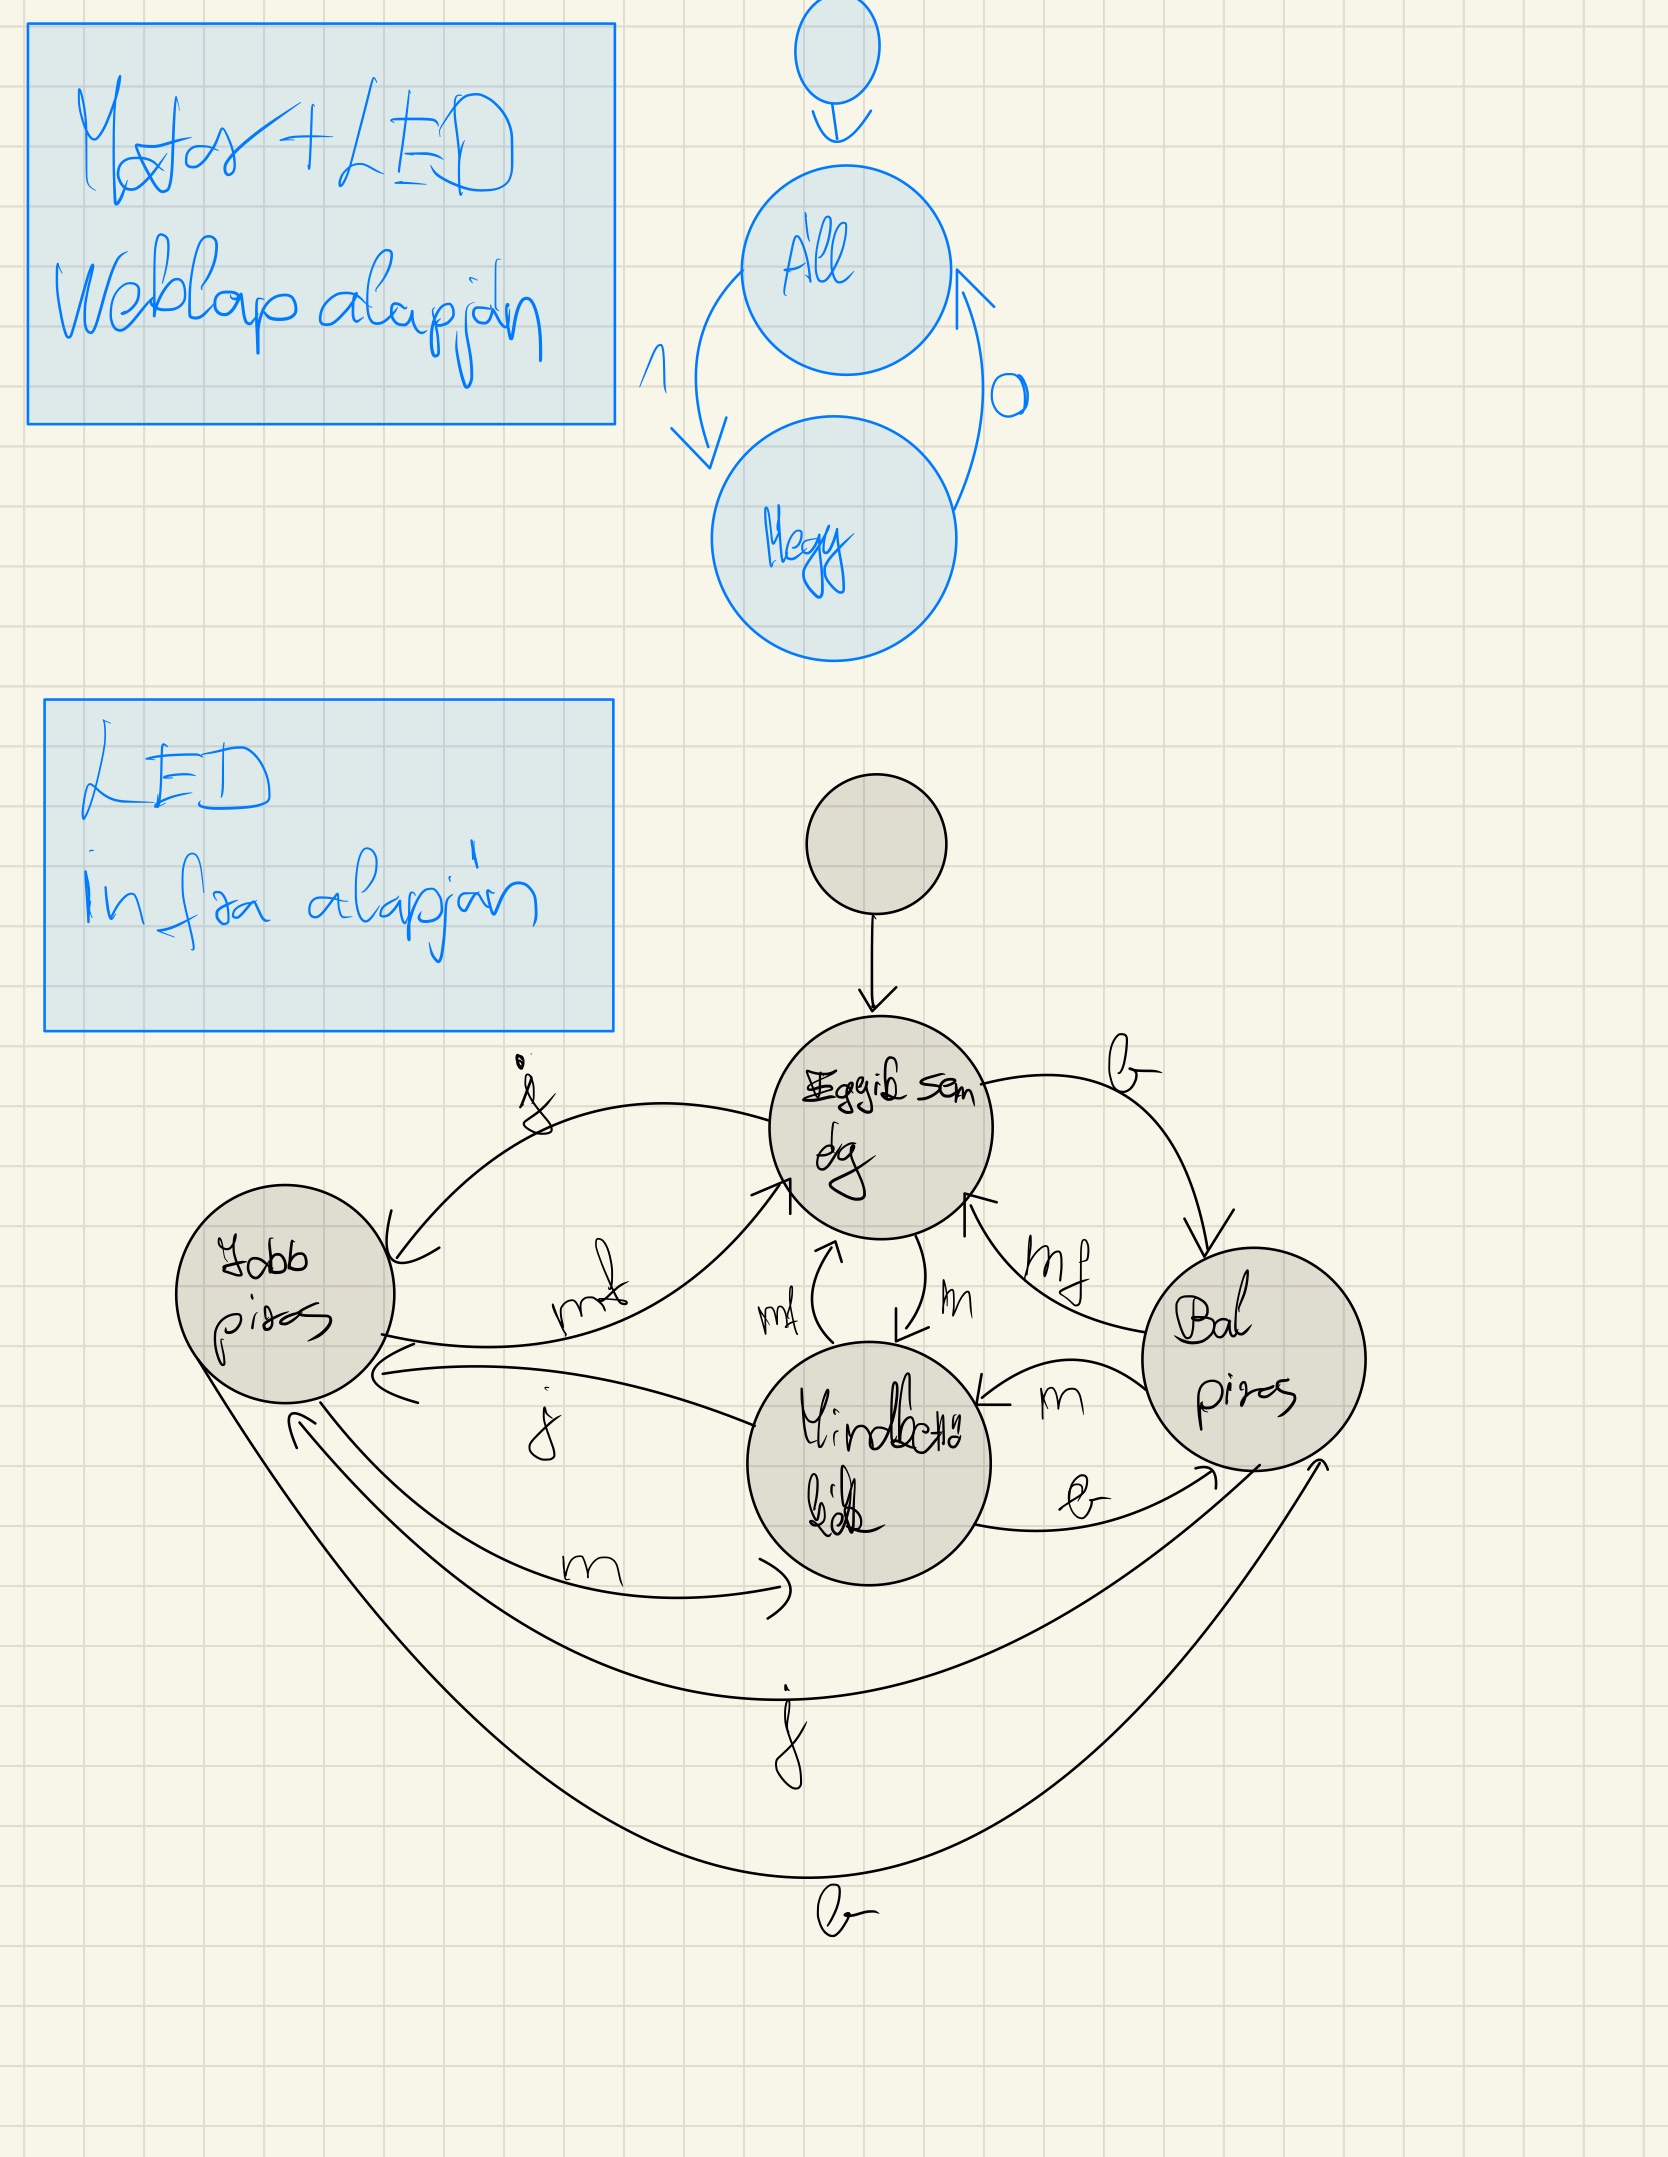 Motor + LED
Weblap alapján
Áll
1
0
Megy
LED
infra alapján
Egyik sem
ég
j
b
Jobb
piros
mf
mf
m
mf
Bal
piros
j
Mindkettő
m
b
m
j
b